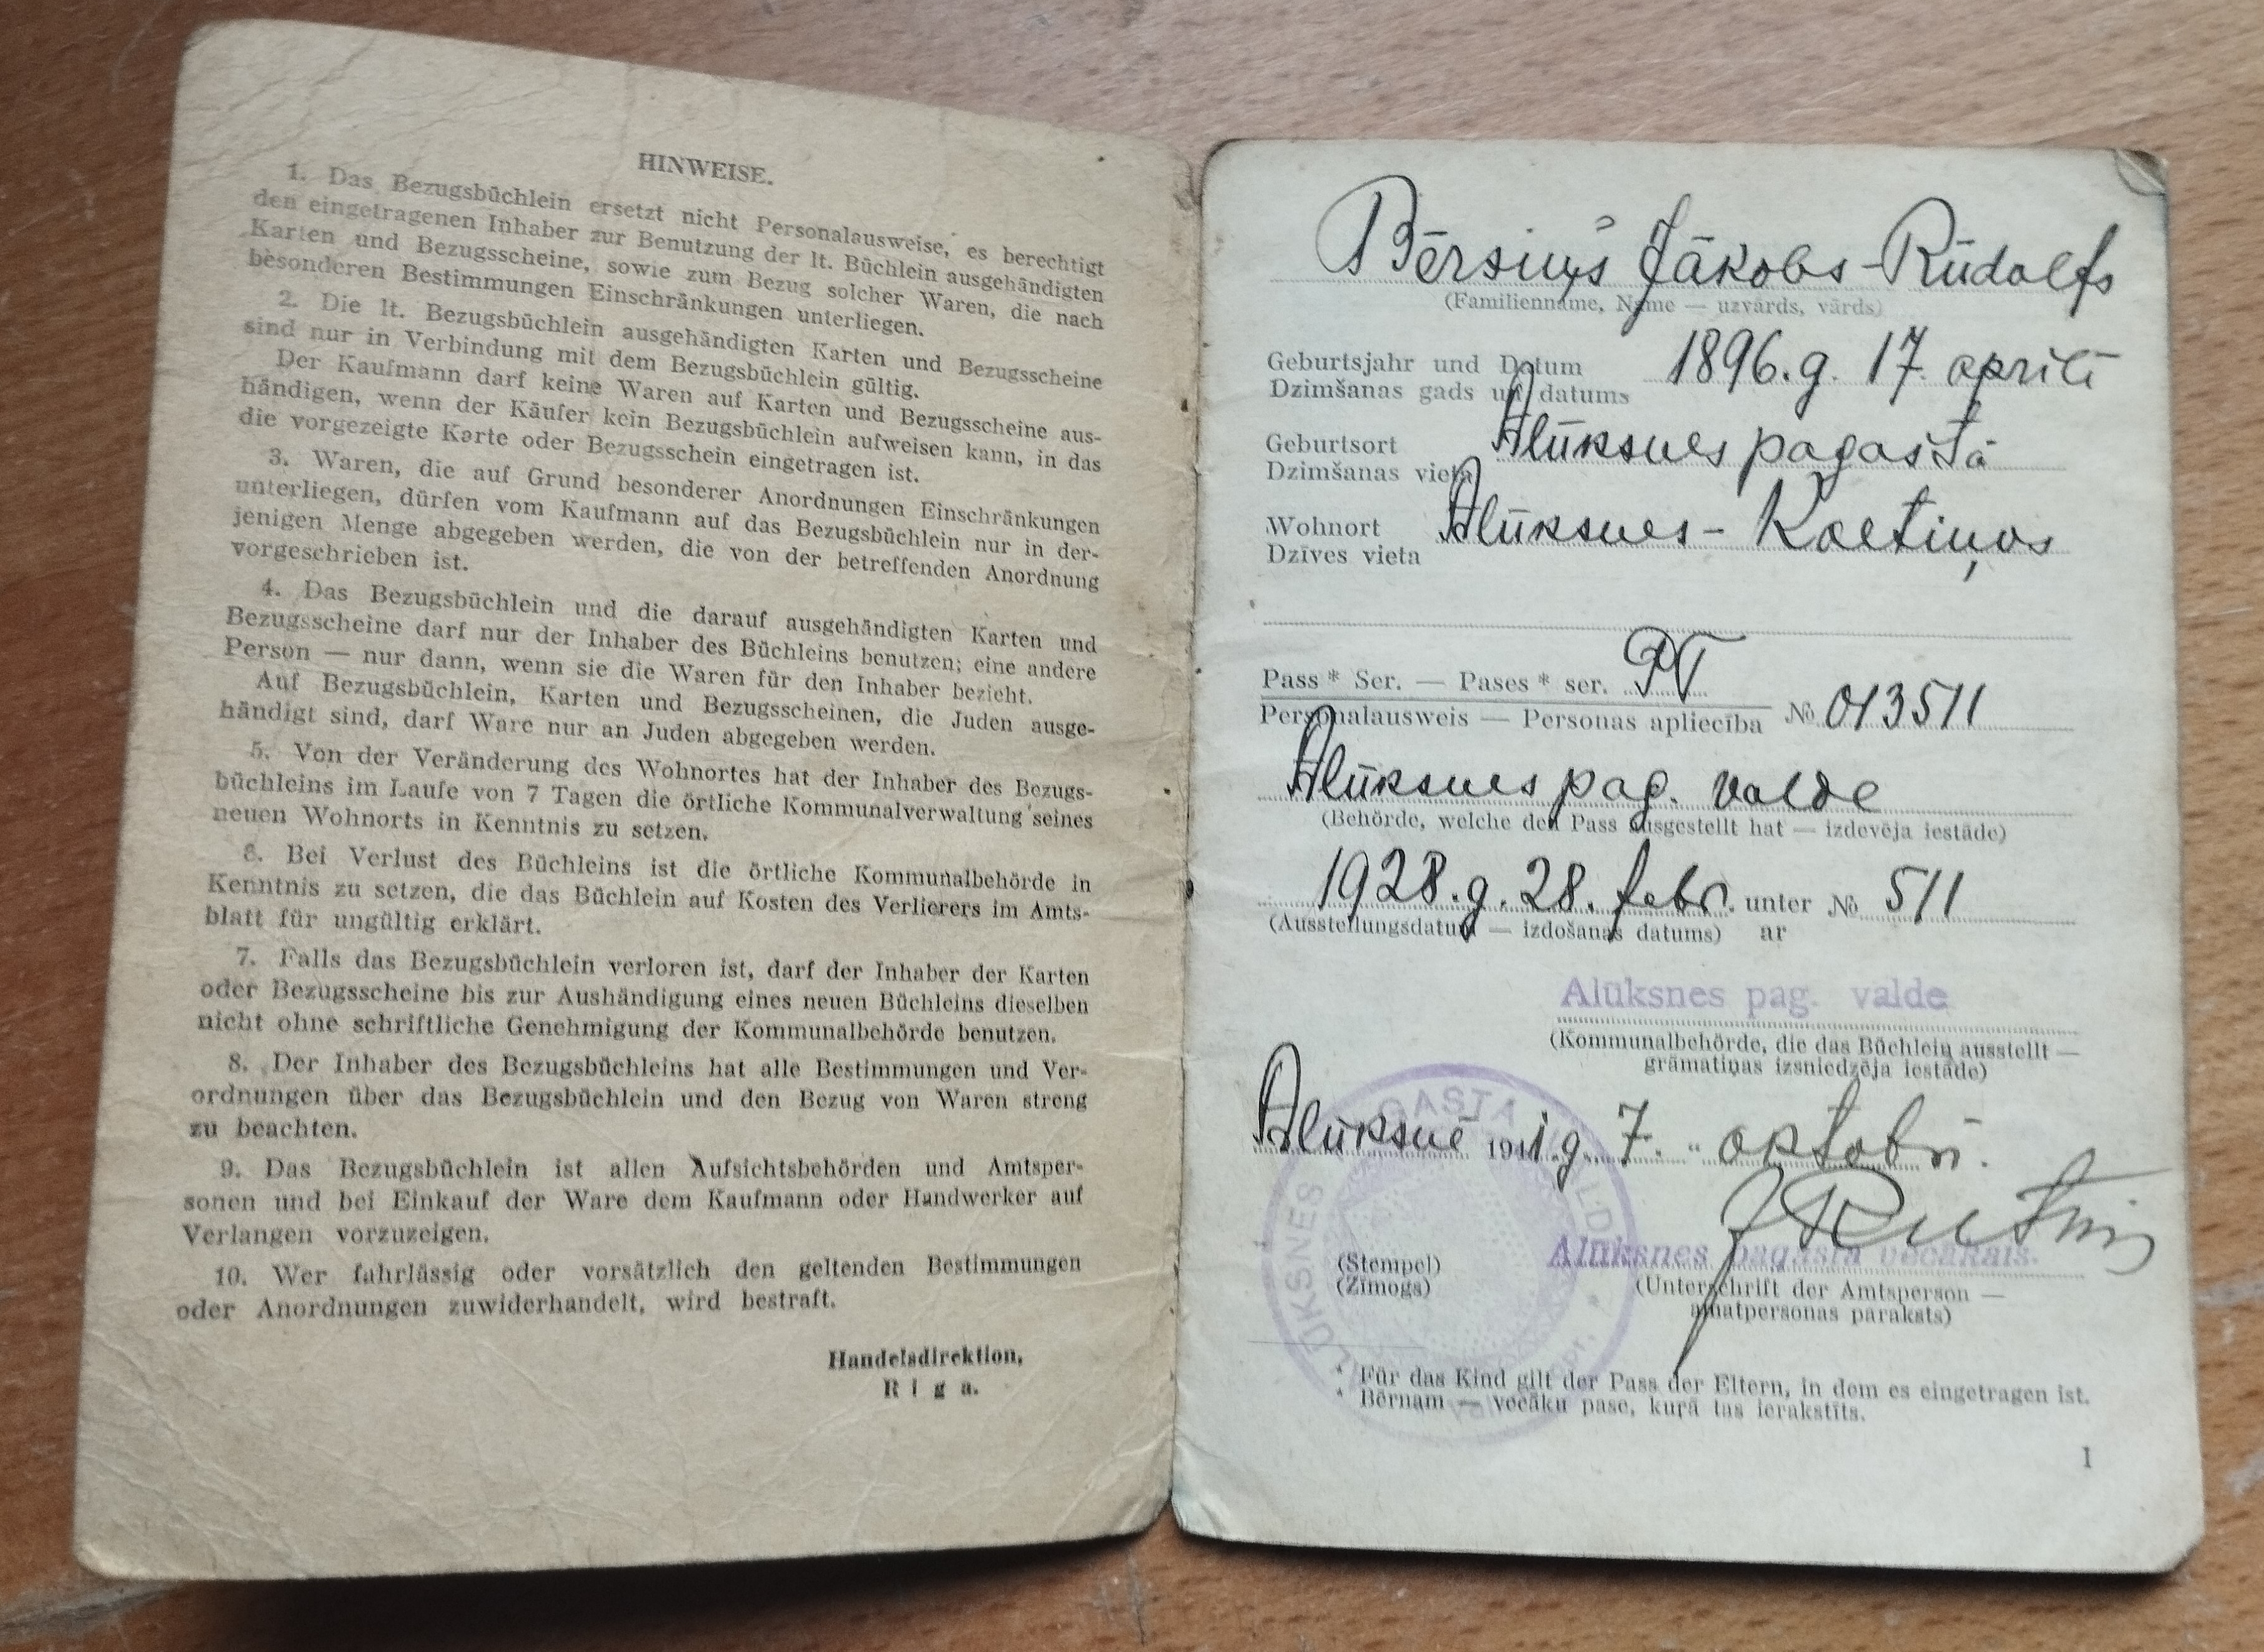 HINWEISE.
1. Das Bezugsbüchlein ersetzt nicht Personalausweise, es berechtigt
den eingetragenen Inhaber zur Benutzung der lt. Büchlein ausgehändigten
Karten und Bezugsscheine, sowie zum Bezug solcher Waren, die nach
besonderen Bestimmungen Einschränkungen unterliegen.
2. Die lt. Bezugsbüchlein ausgehändigten Karten und Bezugsscheine
sind nur in Verbindung mit dem Bezugsbüchlein gültig.
Der Kaufmann darf keine Waren auf Karten und Bezugsscheine aus-
händigen, wenn der Käufer kein Bezugsbüchlein aufweisen kann, in das
die vorgezeigte Karte oder Bezugsschein eingetragen ist.
3. Waren, die auf Grund besonderer Anordnungen Einschränkungen
unterliegen, dürfen vom Kaufmann auf das Bezugsbüchlein nur in der-
jenigen Menge abgegeben werden, die von der betreffenden Anordnung
vorgeschrieben ist.
4. Das Bezugsbüchlein und die darauf ausgehändigten Karten und
Bezugsscheine darf nur der Inhaber des Büchleins benutzen; eine andere
Person — nur dann, wenn sie die Waren für den Inhaber bezieht.
Auf Bezugsbüchlein, Karten und Bezugsscheinen, die Juden ausge-
händigt sind, darf Ware nur an Juden abgegeben werden.
5. Von der Veränderung des Wohnortes hat der Inhaber des Bezugs-
büchleins im Laufe von 7 Tagen die örtliche Kommunalverwaltung seines
neuen Wohnorts in Kenntnis zu setzen.
6. Bei Verlust des Büchleins ist die örtliche Kommunalbehörde in
Kenntnis zu setzen, die das Büchlein auf Kosten des Verlierers im Amts-
blatt für ungültig erklärt.
7. Falls das Bezugsbüchlein verloren ist, darf der Inhaber der Karten
oder Bezugsscheine bis zur Aushändigung eines neuen Büchleins dieselben
nicht ohne schriftliche Genehmigung der Kommunalbehörde benutzen.
8. Der Inhaber des Bezugsbüchleins hat alle Bestimmungen und Ver-
ordnungen über das Bezugsbüchlein und den Bezug von Waren streng
zu beachten.
9. Das Bezugsbüchlein ist allen Aufsichtsbehörden und Amtsper-
sonen und bei Einkauf der Ware dem Kaufmann oder Handwerker auf
Verlangen vorzuzeigen.
10. Wer fahrlässig oder vorsätzlich den geltenden Bestimmungen
oder Anordnungen zuwiderhandelt, wird bestraft.
Handelsdirektion,
Riga.
Bērsiņš Jākobs-Rūdolfs
(Familienname, Name — uzvārds, vārds)
Geburtsjahr und Datum 1896.g. 17. aprīlī
Dzimšanas gads un datums
Geburtsort Alūksnes pagastā
Dzimšanas vieta
Wohnort Alūksnes - Kaktiņos
Dzīves vieta
Pass * Ser. — Pases * ser. PT
Personalausweis — Personas apliecība № 013511
Alūksnes pag. valde
(Behörde, welche den Pass ausgestellt hat — izdevēja iestāde)
1928.g. 28. febr. unter № 511
(Ausstellungsdatum — izdošanas datums) ar
Alūksnes pag. valde
(Kommunalbehörde, die das Büchlein ausstellt —
grāmatiņas izsniedzēja iestāde)
Alūksnē 1941.g. 7. oktobrī.
Alūksnes pagasta vecākais.
(Stempel) (Unterschrift der Amtsperson —
(Zīmogs) amatpersonas paraksts)
* Für das Kind gilt der Pass der Eltern, in dem es eingetragen ist.
* Bērnam — vecāku pase, kuŗā tas ierakstīts.
1